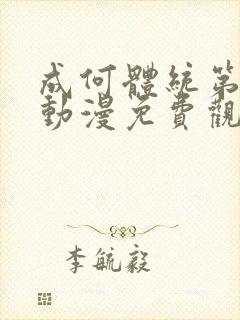 成何體統第
動漫免費觀
李毓毅